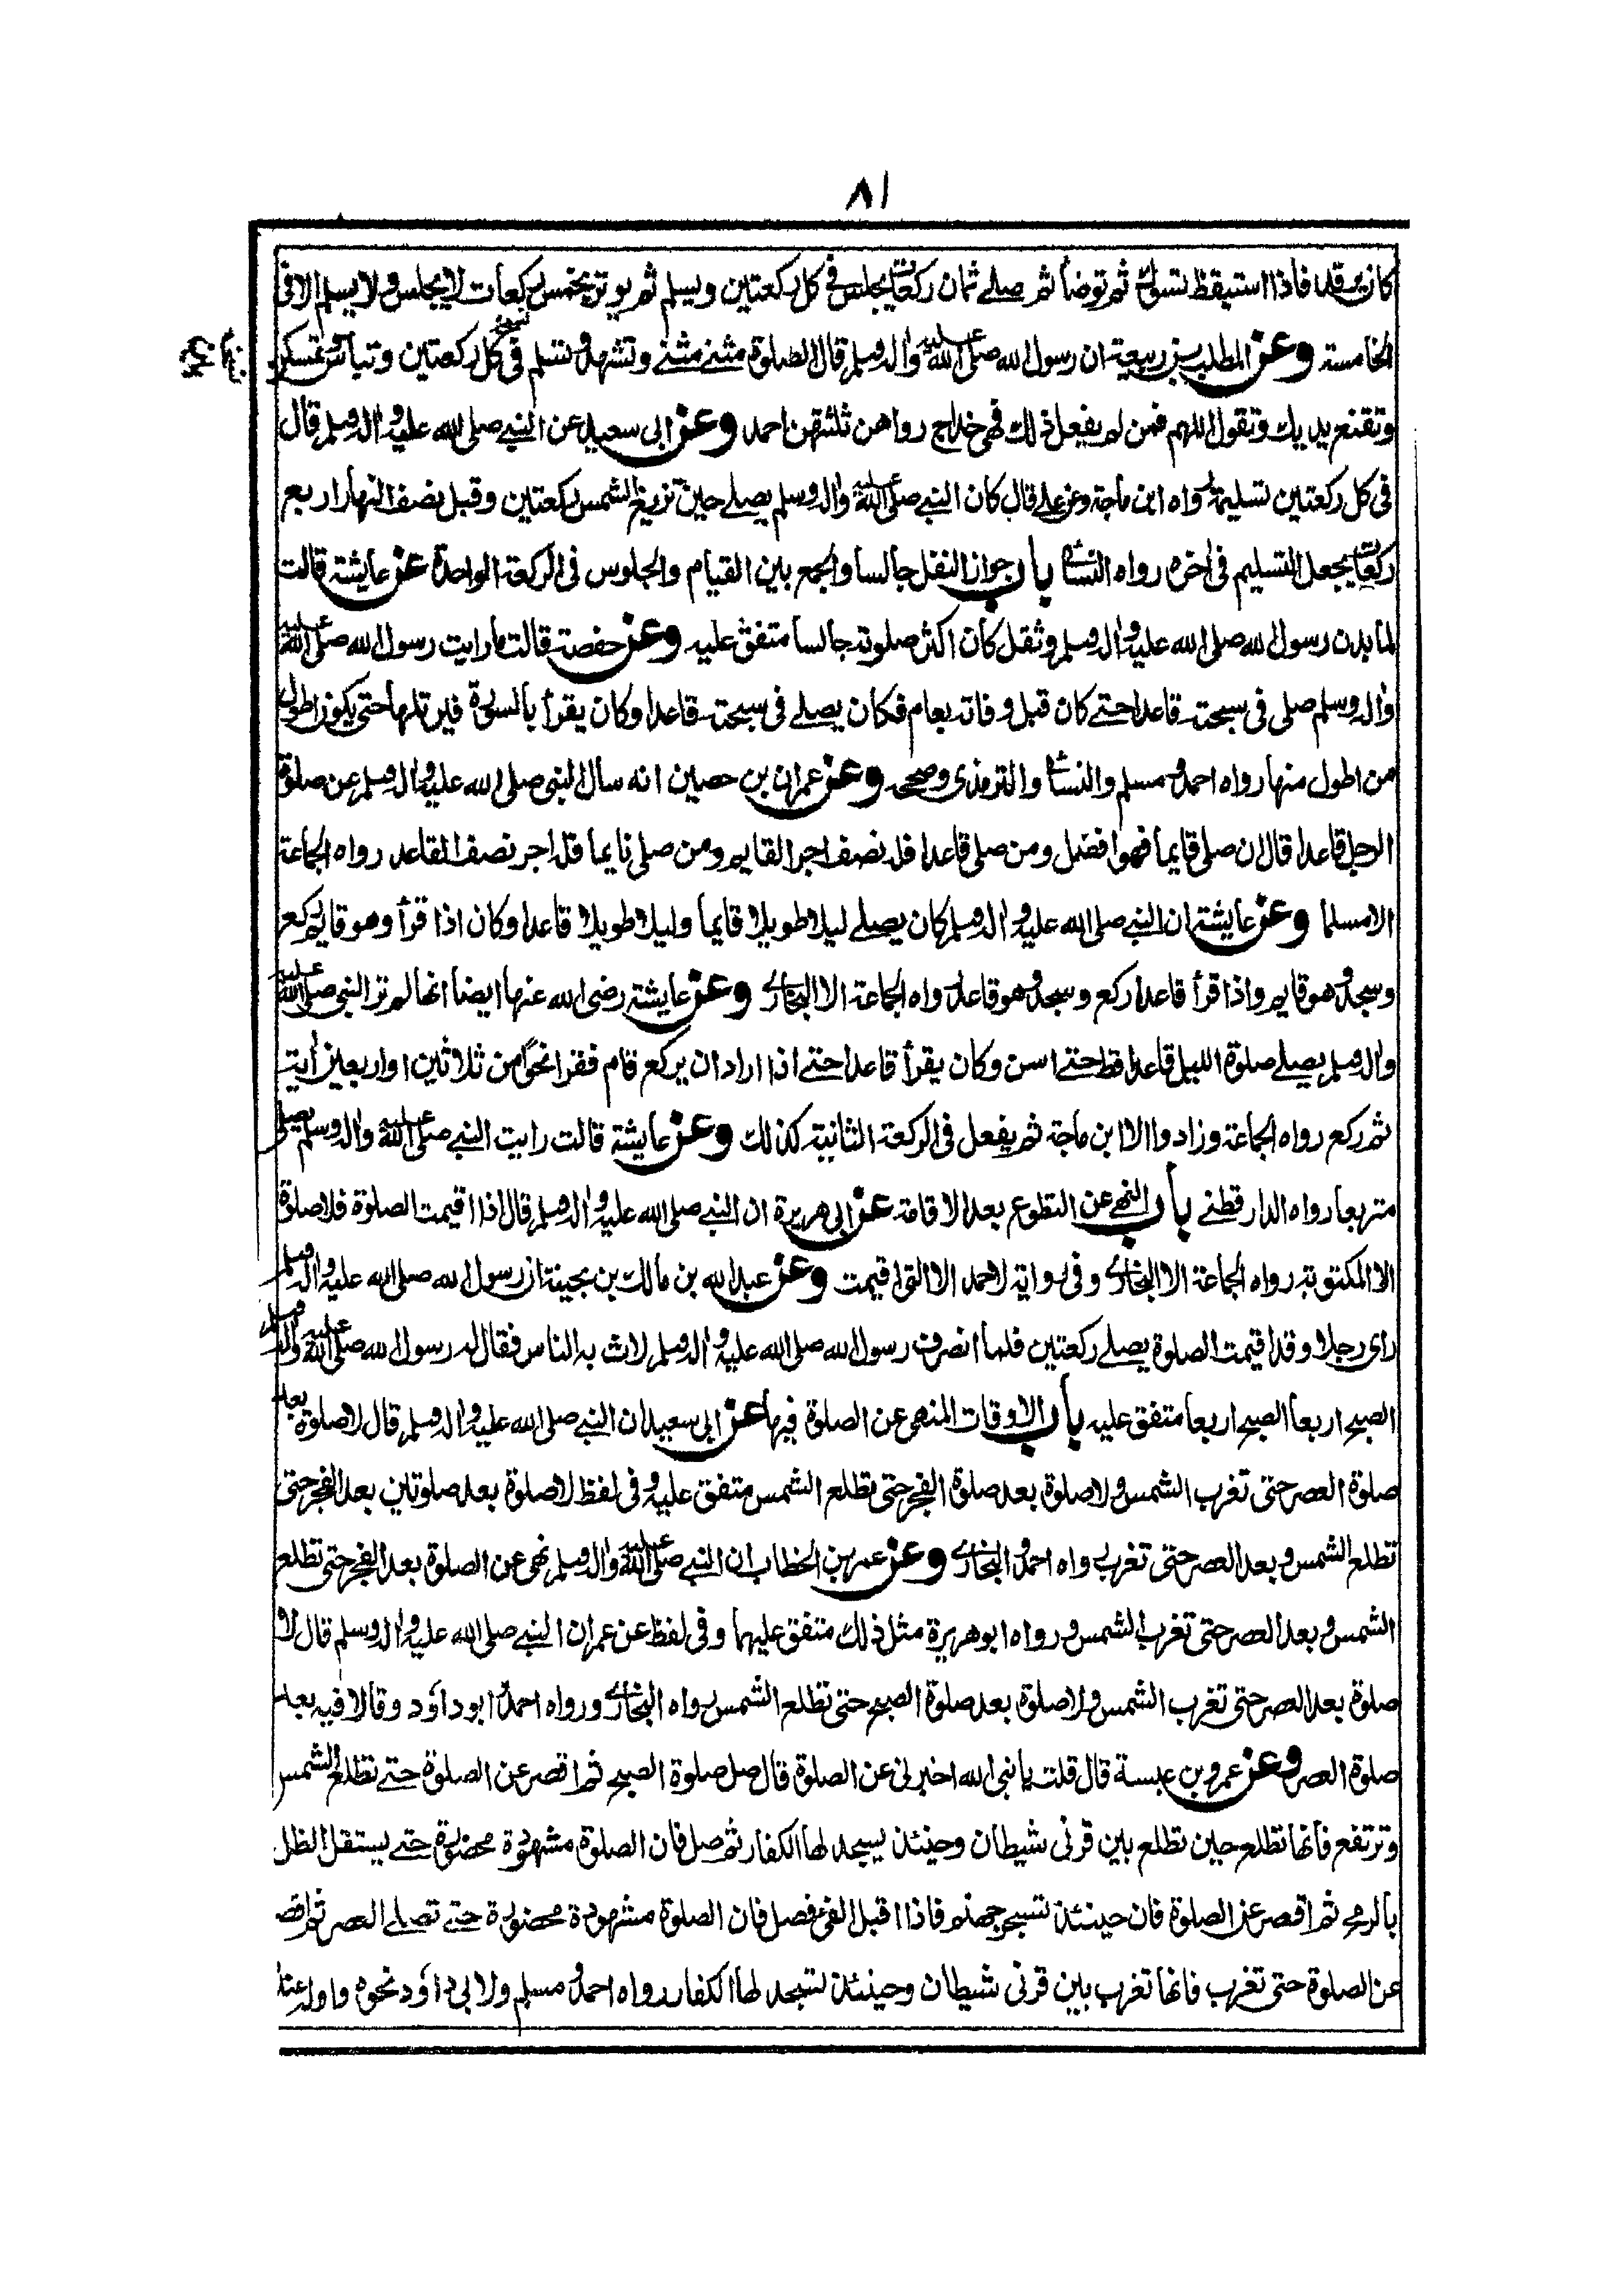 ٨١
كان يرقد فاذا استيقظ تسوك ثم توضأ ثم صلے ثمان ركعات يجلس فى كل ركعتين ويسلم ثم يوتر بخمس ركعات لا يجلس ولا يسلم الا فى
الخامسة وعن المطلب بن ربيعة ان رسول الله صلى الله عليه واله وسلم قال الصلوة مثنے مثنے وتشهد وتسلم فى كل ركعتين وتبأس وتمسكن
وتقنع يديك وتقول اللهم فمن لم يفعل ذلك فهى خداج رواهن ثلثتهن احمد وعن ابى سعيد عن النبے صلى الله عليه واله وسلم قال
فى كل ركعتين تسليمة رواه ابن ماجة وعن علے قال كان النبے صلى الله عليه واله وسلم يصلے حين تزيغ الشمس ركعتين وقبل نصف النهار اربع
ركعات يجعل التسليم فى اخره رواه النسائے باب جواز النفل جالسا والجمع بين القيام والجلوس فى الركعة الواحدة عن عايشة قالت
لما بدن رسول الله صلى الله عليه واله وسلم وثقل كان اكثر صلوته جالسا متفق عليه وعن حفصة قالت ما رايت رسول الله صلى الله عليه
واله وسلم صلى فى سبحته قاعدا حتے كان قبل وفاته بعام فكان يصلے فى سبحته قاعدا وكان يقرأ بالسورة فيرتلها حتى يكون اطول
من اطول منها رواه احمد ومسلم والنسائے والترمذى وصححه وعن عمران بن حصين انه سال النبى صلى الله عليه واله وسلم عن صلوة
الرجل قاعدا قال ان صلى قايما فهو افضل ومن صلى قاعدا فله نصف اجر القايم ومن صلى نايما فله اجر نصف القاعد رواه الجماعة
الا مسلما وعن عايشة ان النبے صلى الله عليه واله وسلم كان يصلے ليلا طويلا قايما وليلا طويلا قاعدا وكان اذا قرأ وهو قايم ركع
وسجد وهو قايم واذا قرأ قاعدا ركع وسجد وهو قاعد رواه الجماعة الا البخارے وعن عايشة رضى الله عنها ايضا انها لم تر النبى صلى الله عليه
واله وسلم يصلے صلوة الليل قاعدا قط حتے اسن وكان يقرأ قاعدا حتے اذا اراد ان يركع قام فقرا نحوا من ثلاثين او اربعين أية
ثم ركع رواه الجماعة وزادوا الا ابن ماجة ثم يفعل فى الركعة الثانية كذلك وعن عايشة قالت رايت النبے صلى الله عليه واله وسلم يصلے
متربعا رواه الدارقطنے باب النهے عن التطوع بعد الاقامة عن ابى هريرة ان النبے صلى الله عليه واله وسلم قال اذا اقيمت الصلوة فلا صلوة
الا المكتوبة رواه الجماعة الا البخارے وفى رواية لاحمد الا التى اقيمت وعن عبد الله بن مالك بن بحينة ان رسول الله صلى الله عليه واله وسلم
راى رجلا وقد اقيمت الصلوة يصلے ركعتين فلما انصرف رسول الله صلى الله عليه واله وسلم لاث به الناس فقال له رسول الله صلى الله عليه واله وسلم
الصبح اربعا الصبح اربعا متفق عليه باب الاوقات المنهى عن الصلوة فيها عن ابى سعيد ان النبے صلى الله عليه واله وسلم قال لا صلوة بعد
صلوة العصر حتى تغرب الشمس ولا صلوة بعد صلوة الفجر حتى تطلع الشمس متفق عليه وفى لفظ لا صلوة بعد صلوتين بعد الفجر حتى
تطلع الشمس وبعد العصر حتى تغرب رواه احمد والبخارے وعن عمر بن الخطاب ان النبے صلى الله عليه واله وسلم نهى عن الصلوة بعد الفجر حتى تطلع
الشمس وبعد العصر حتى تغرب الشمس ورواه ابو هريرة مثل ذلك متفق عليهما وفى لفظ عن عمر ان النبے صلى الله عليه واله وسلم قال لا
صلوة بعد العصر حتى تغرب الشمس ولا صلوة بعد صلوة الصبح حتى تطلع الشمس رواه البخارے ورواه احمد وابو داؤد وقالا فيه بعد
صلوة العصر وعن عمرو بن عبسة قال قلت يا نبى الله اخبرنى عن الصلوة قال صل صلوة الصبح ثم اقصر عن الصلوة حتے تطلع الشمس
وترتفع فانها تطلع حين تطلع بين قرنى شيطان وحينئذ يسجد لها الكفار ثم صل فان الصلوة مشهودة محضورة حتے يستقل الظل
بالرمح ثم اقصر عن الصلوة فان حينئذ تسجر جهنم فاذا اقبل الفئ فصل فان الصلوة مشهودة محضورة حتے تصلے العصر ثم اقصر
عن الصلوة حتى تغرب فانها تغرب بين قرنى شيطان وحينئذ تسجد لها الكفار رواه احمد ومسلم ولابى داؤد نحوه واوله عنده